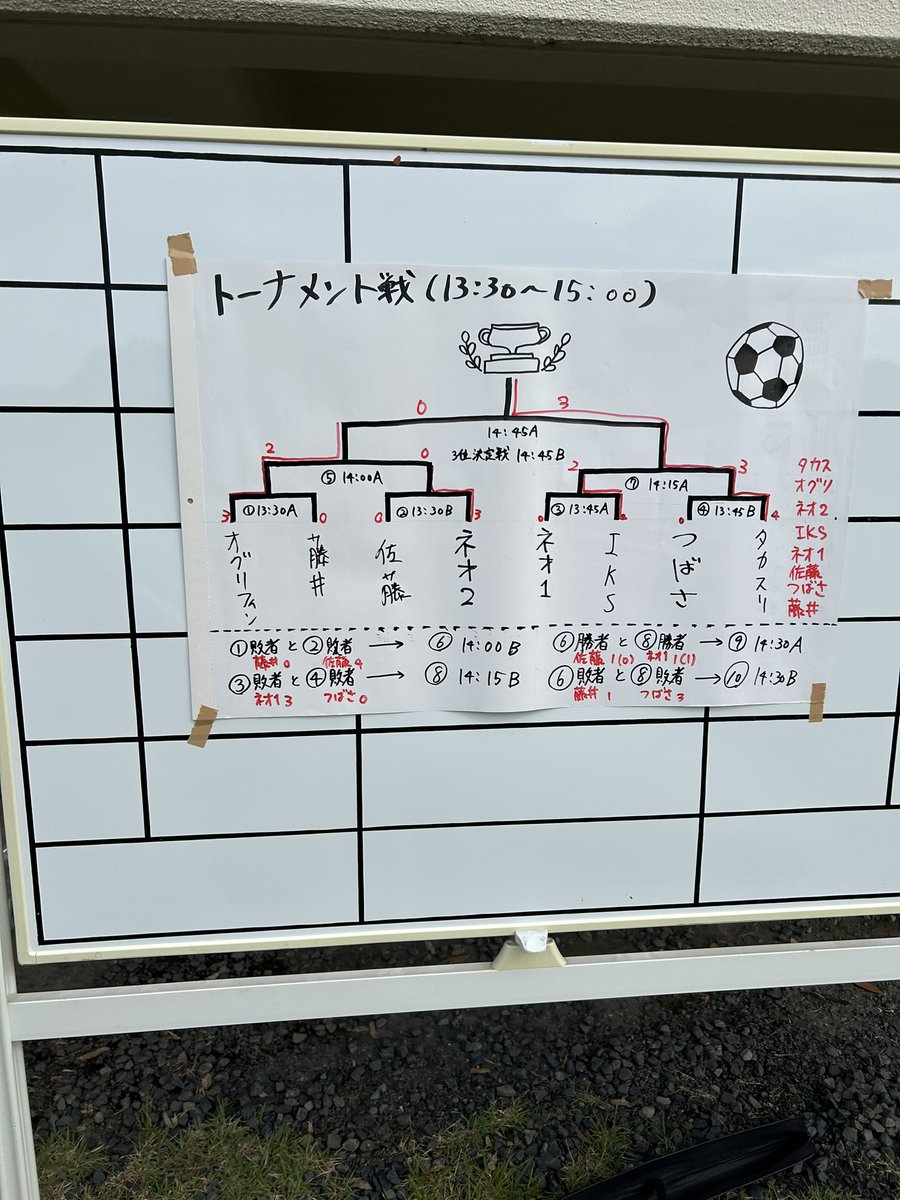 トーナメント戦(13:30〜15:00)
0 3
14:45A
3位決定戦 14:45B
2 0 2 3
⑤ 14:00A ⑦ 14:15A
3 ①13:30A 0 0 ②13:30B 3 0 ③13:45A 2 0 ④13:45B 4
オグリフィン
藤井
佐藤
ネオ2
ネオ1
IKS
つばさ
タカスリ
タカス
オグリ
ネオ2
IKS
ネオ1
佐藤
つばさ
藤井
①敗者と②敗者 → ⑥ 14:00B
藤井 0 佐藤 4
③敗者と④敗者 → ⑧ 14:15B
ネオ1 3 つばさ 0
⑥勝者と⑧勝者 → ⑨ 14:30A
佐藤 1(0) ネオ1 1(1)
⑥敗者と⑧敗者 → ⑩ 14:30B
藤井 1 つばさ 3